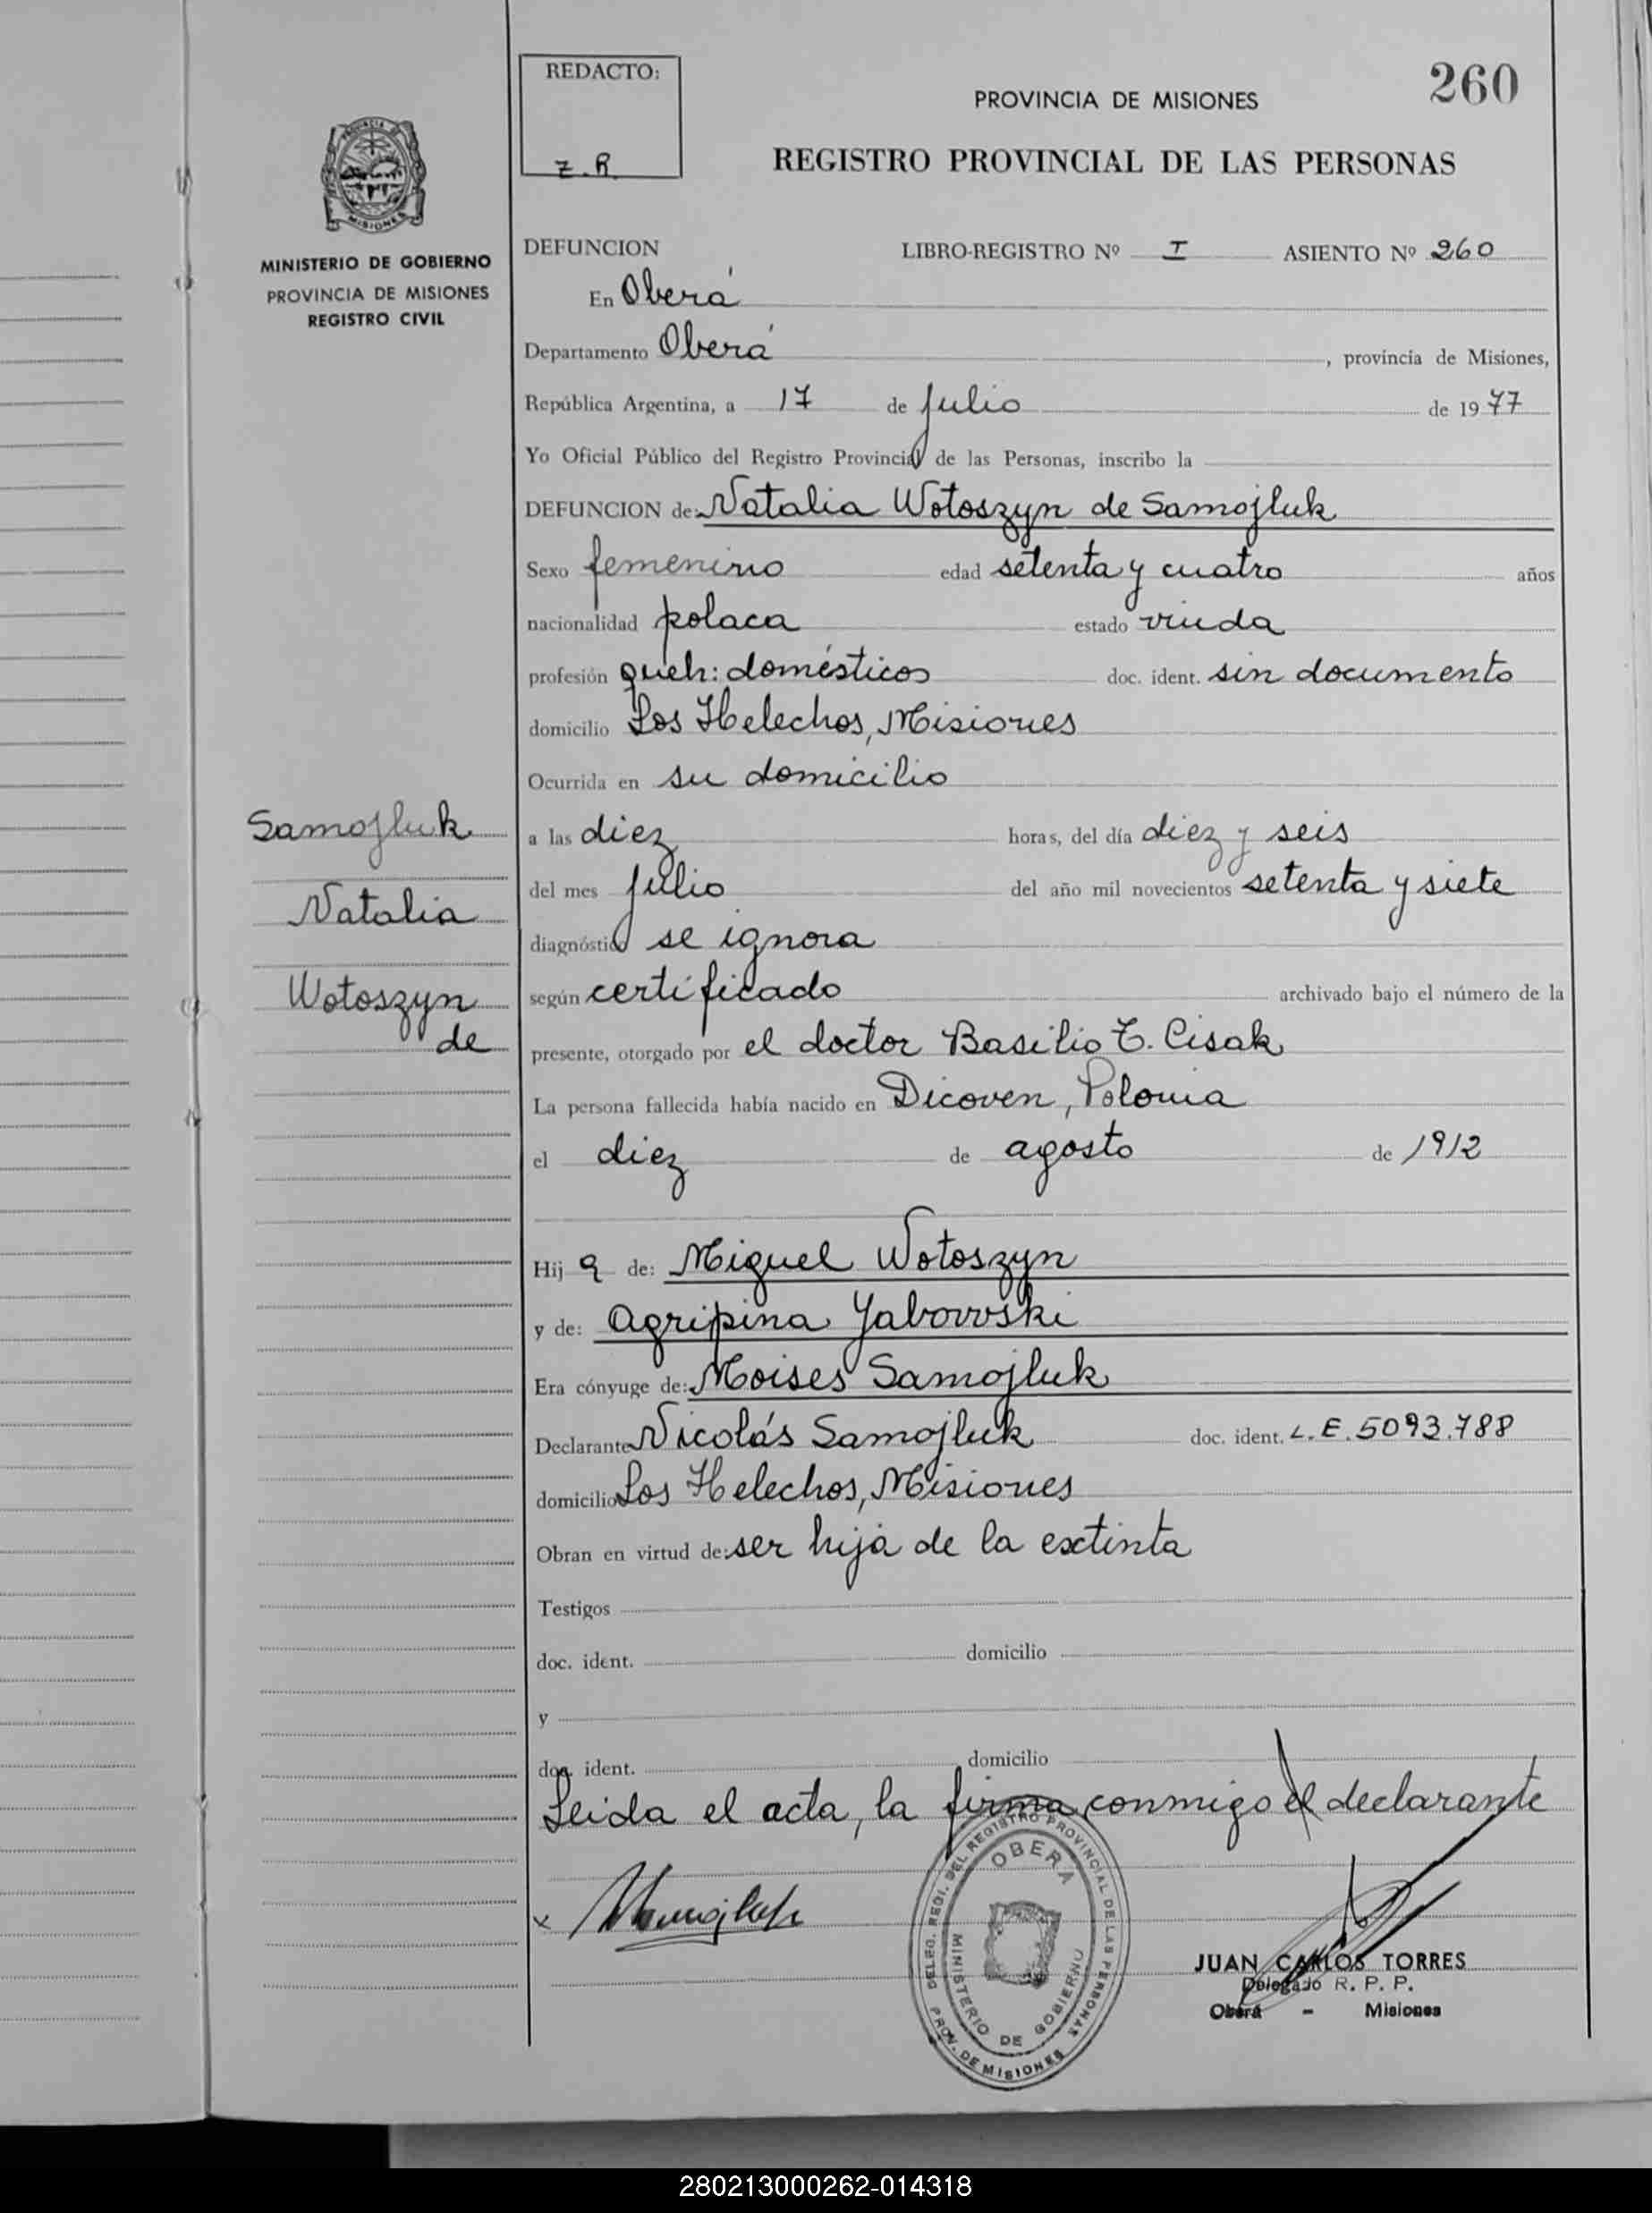 REDACTO:
Z. R.
260
PROVINCIA DE MISIONES
REGISTRO PROVINCIAL DE LAS PERSONAS
PROVINCIA DE
MISIONES
MINISTERIO DE GOBIERNO
PROVINCIA DE MISIONES
REGISTRO CIVIL
DEFUNCION LIBRO-REGISTRO Nº I ASIENTO Nº 260
En Oberá
Departamento Oberá, provincia de Misiones,
República Argentina, a 17 de julio de 1977
Yo Oficial Público del Registro Provincial de las Personas, inscribo la
DEFUNCION de: Natalia Wotoszyn de Samojluk
Sexo femenino edad setenta y cuatro años
nacionalidad polaca estado viuda
profesión queh: domésticos doc. ident. sin documento
domicilio Los Helechos, Misiones
Ocurrida en su domicilio
Samojluk
Natalia
Wotoszyn
de
a las diez horas, del día diez y seis
del mes julio del año mil novecientos setenta y siete
diagnóstico se ignora
según certificado archivado bajo el número de la
presente, otorgado por el doctor Basilio T. Cisak
La persona fallecida había nacido en Dicoven, Polonia
el diez de agosto de 1912
Hij a de: Miguel Wotoszyn
y de: Agripina Yabowski
Era cónyuge de: Moises Samojluk
Declarante Nicolás Samojluk doc. ident. L.E. 5093.788
domicilio Los Helechos, Misiones
Obran en virtud de: ser hijo de la extinta
Testigos
doc. ident. domicilio
y
doc. ident. domicilio
Leida el acta, la firma conmigo el declarante
x
DELEG. REGI. DEL REGISTRO PROVINCIAL DE LAS PERSONAS
PROV. DE MISIONES
OBERA
MINISTERIO DE GOBIERNO
JUAN CARLOS TORRES
Delegado R. P. P.
Oberá - Misiones
280213000262-014318